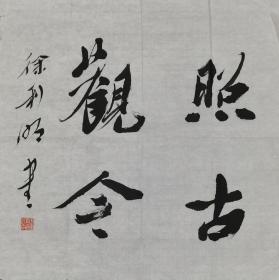 照古
觀今
徐利明書